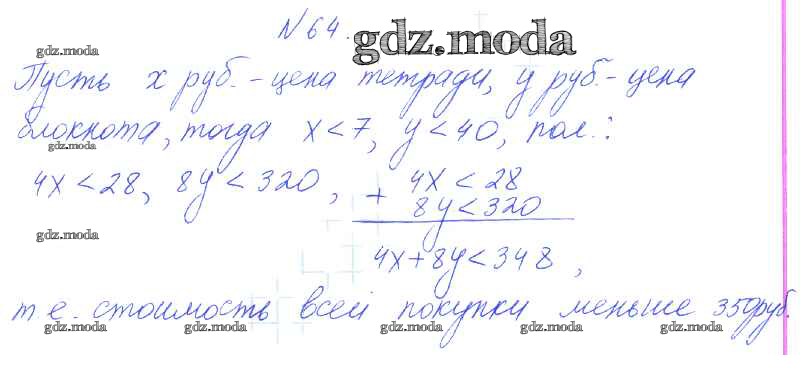 № 64.
gdz.moda
gdz.moda
Пусть x руб. - цена тетради, y руб. - цена
блокнота, тогда x < 7, y < 40, пол.:
gdz.moda
4x < 28, 8y < 320, + 4x < 28
8y < 320
gdz.moda
4x + 8y < 348,
т.е. стоимость всей покупки меньше 350руб.
gdz.moda gdz.moda gdz.moda gdz.moda gdz.moda